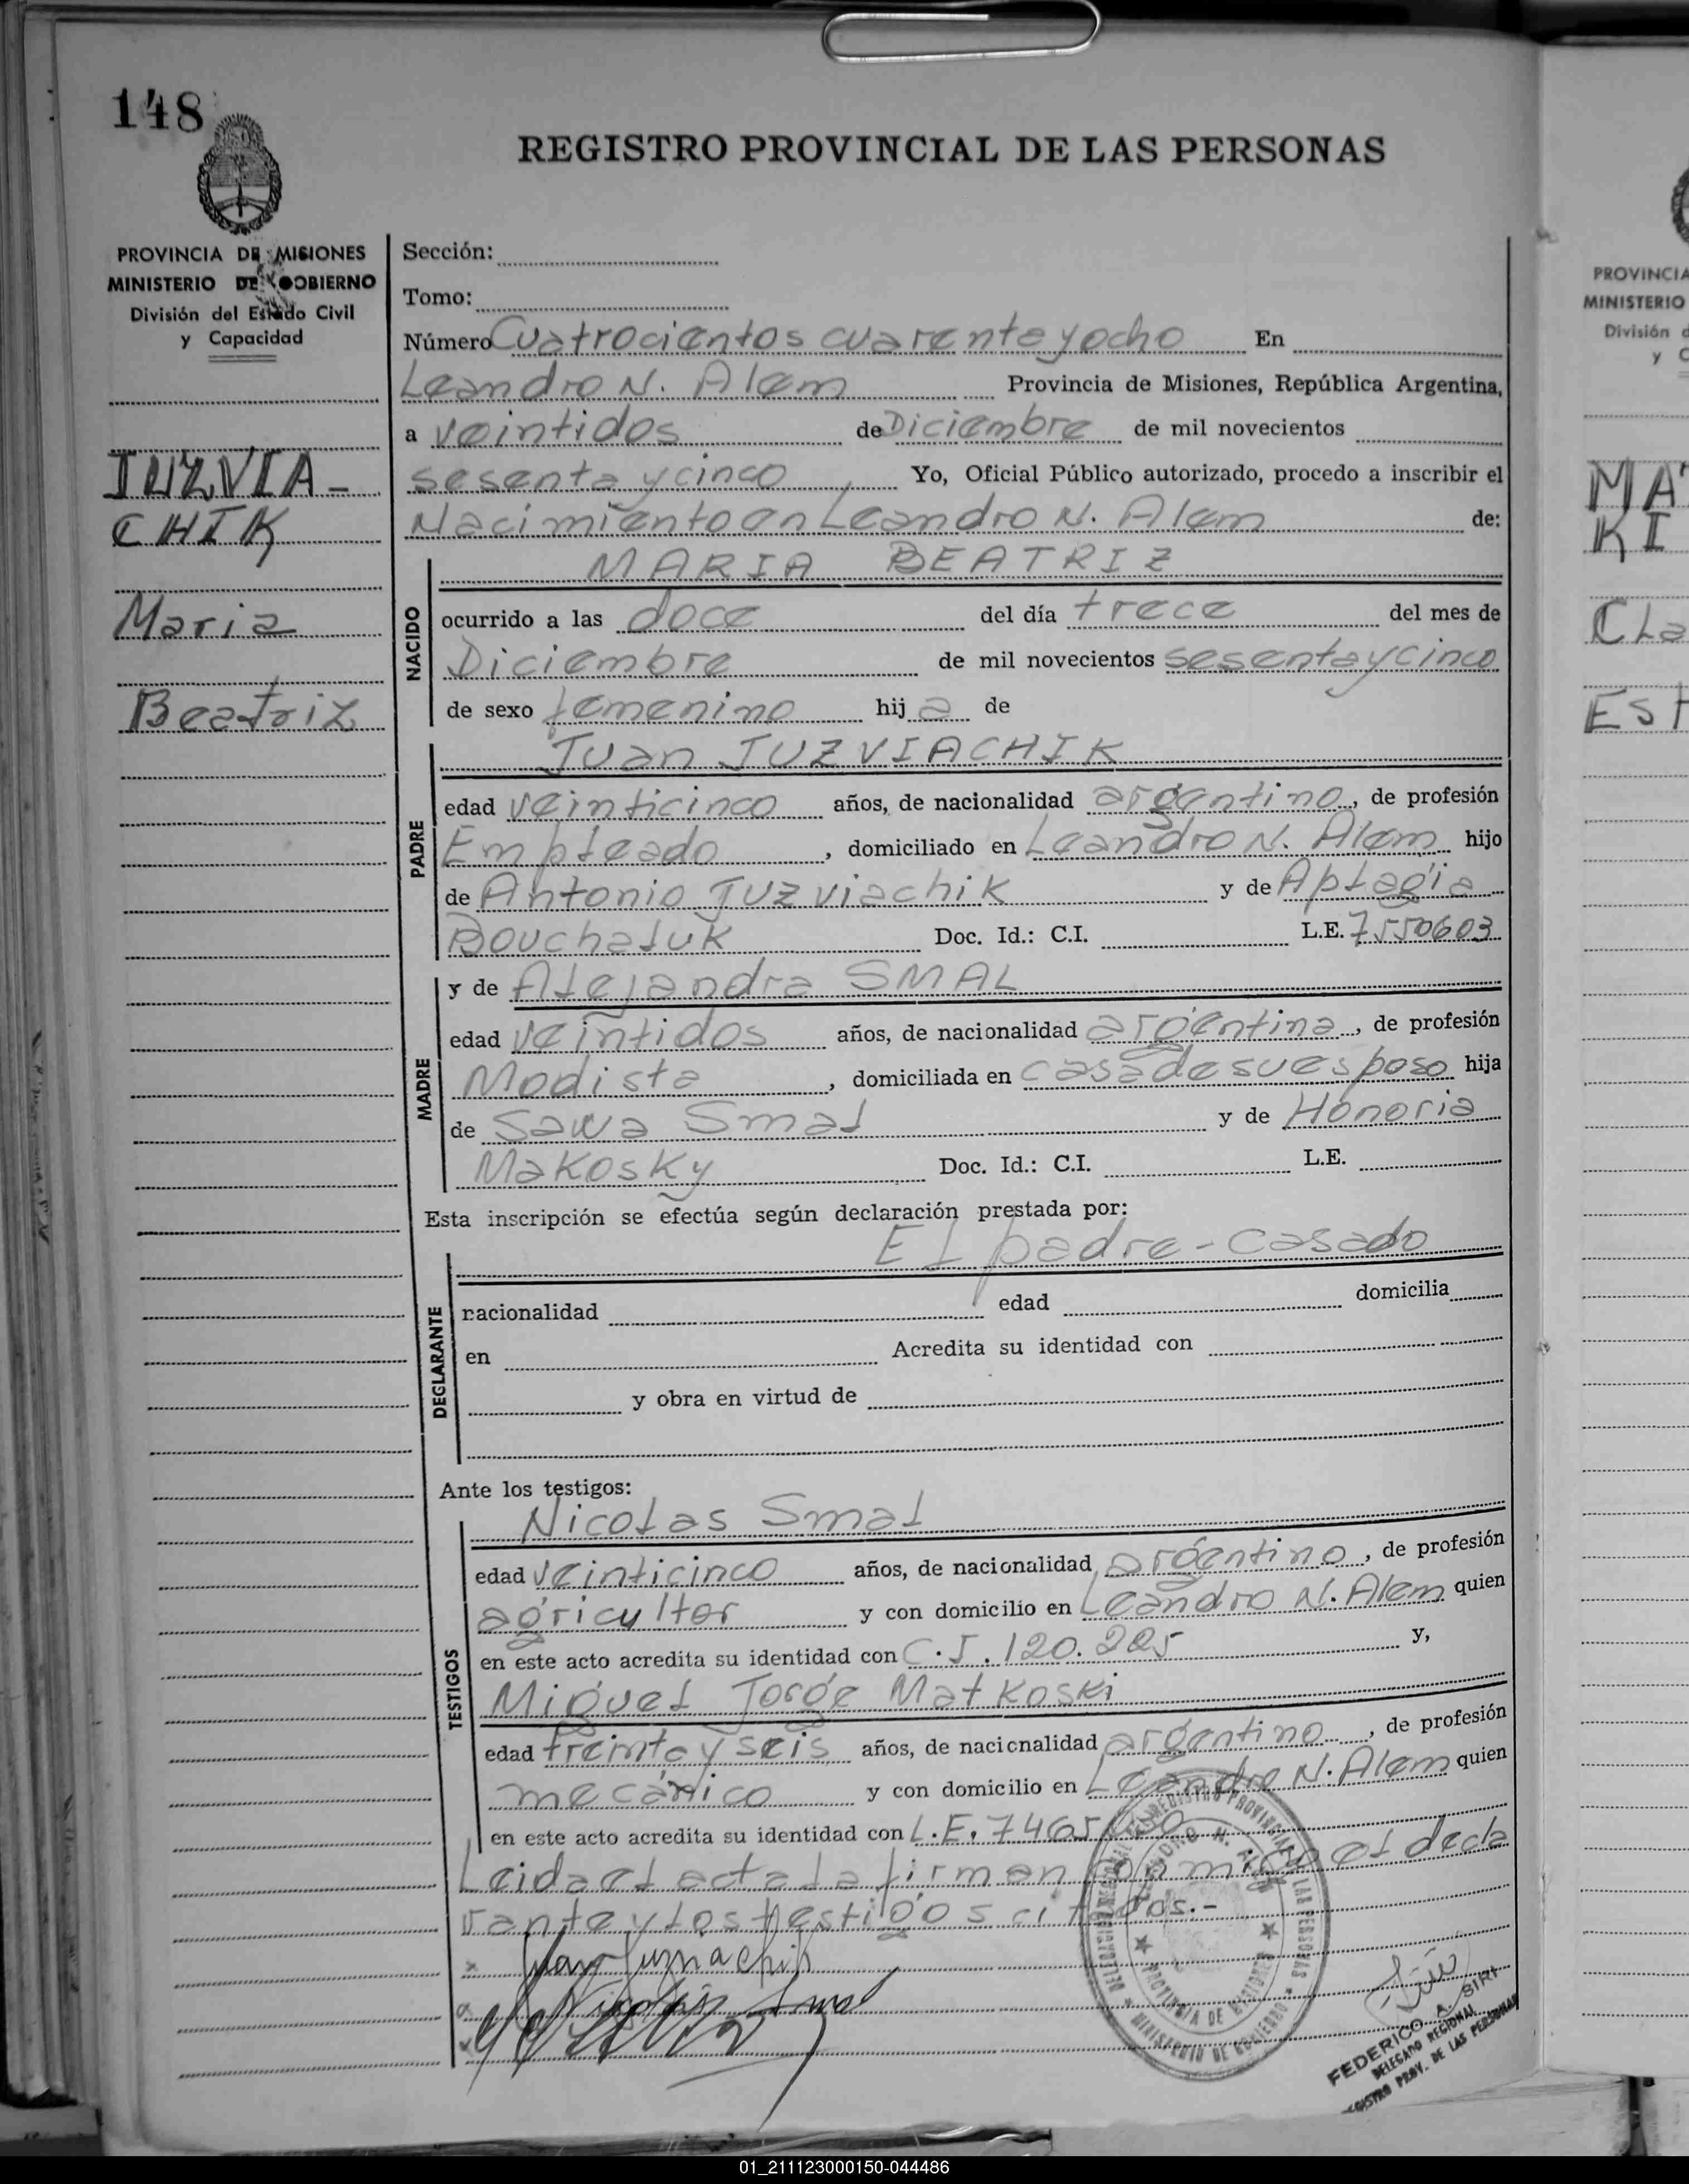 148
REGISTRO PROVINCIAL DE LAS PERSONAS
PROVINCIA DE MISIONES
MINISTERIO DE GOBIERNO
División del Estado Civil
y Capacidad
JUZVIA-
CHIK
Maria
Beatriz
Sección:
Tomo:
Número Cuatrocientos cuarenta y ocho En
Leandro N. Alem Provincia de Misiones, República Argentina,
a veintidos de Diciembre de mil novecientos
sesenta y cinco Yo, Oficial Público autorizado, procedo a inscribir el
Nacimiento en Leandro N. Alem de:
MARIA BEATRIZ
NACIDO
ocurrido a las doce del día trece del mes de
Diciembre de mil novecientos sesenta y cinco
de sexo femenino hij a de
Juan JUZVIACHIK
PADRE
edad veinticinco años, de nacionalidad argentino, de profesión
Empleado, domiciliado en Leandro N. Alem hijo
de Antonio Juzviachik y de Aplagia
Bouchaluk Doc. Id.: C.I. L.E. 7550603
y de Alejandra SMAL
MADRE
edad veintidos años, de nacionalidad argentina, de profesión
Modista, domiciliada en casa de su esposo hija
de Sawa Smal y de Honoria
Makosky Doc. Id.: C.I. L.E.
Esta inscripción se efectúa según declaración prestada por:
El padre - casado
DECLARANTE
nacionalidad edad domicilia
en Acredita su identidad con
y obra en virtud de
Ante los testigos:
Nicolas Smal
TESTIGOS
edad veinticinco años, de nacionalidad argentino, de profesión
agricultor y con domicilio en Leandro N. Alem quien
en este acto acredita su identidad con C.I. 120.225 y,
Miguel Jorge Matkoski
edad treinta y seis años, de nacionalidad argentino, de profesión
mecánico y con domicilio en Leandro N. Alem quien
en este acto acredita su identidad con L.E. 7465
Leida el acta la firman conmigo el decla
rante y los testigos citados.-
Nicolas Smal
REGISTRO PROVINCIAL DE LAS PERSONAS
LEANDRO N. ALEM
PROVINCIA DE MISIONES
MINISTERIO DE GOBIERNO
FEDERICO A. SIRI
DELEGADO REGIONAL
REGISTRO PROV. DE LAS PERSONAS
PROVINCIA
MINISTERIO
División d
y C
MAT
KI
Cla
Est
01_211123000150-044486